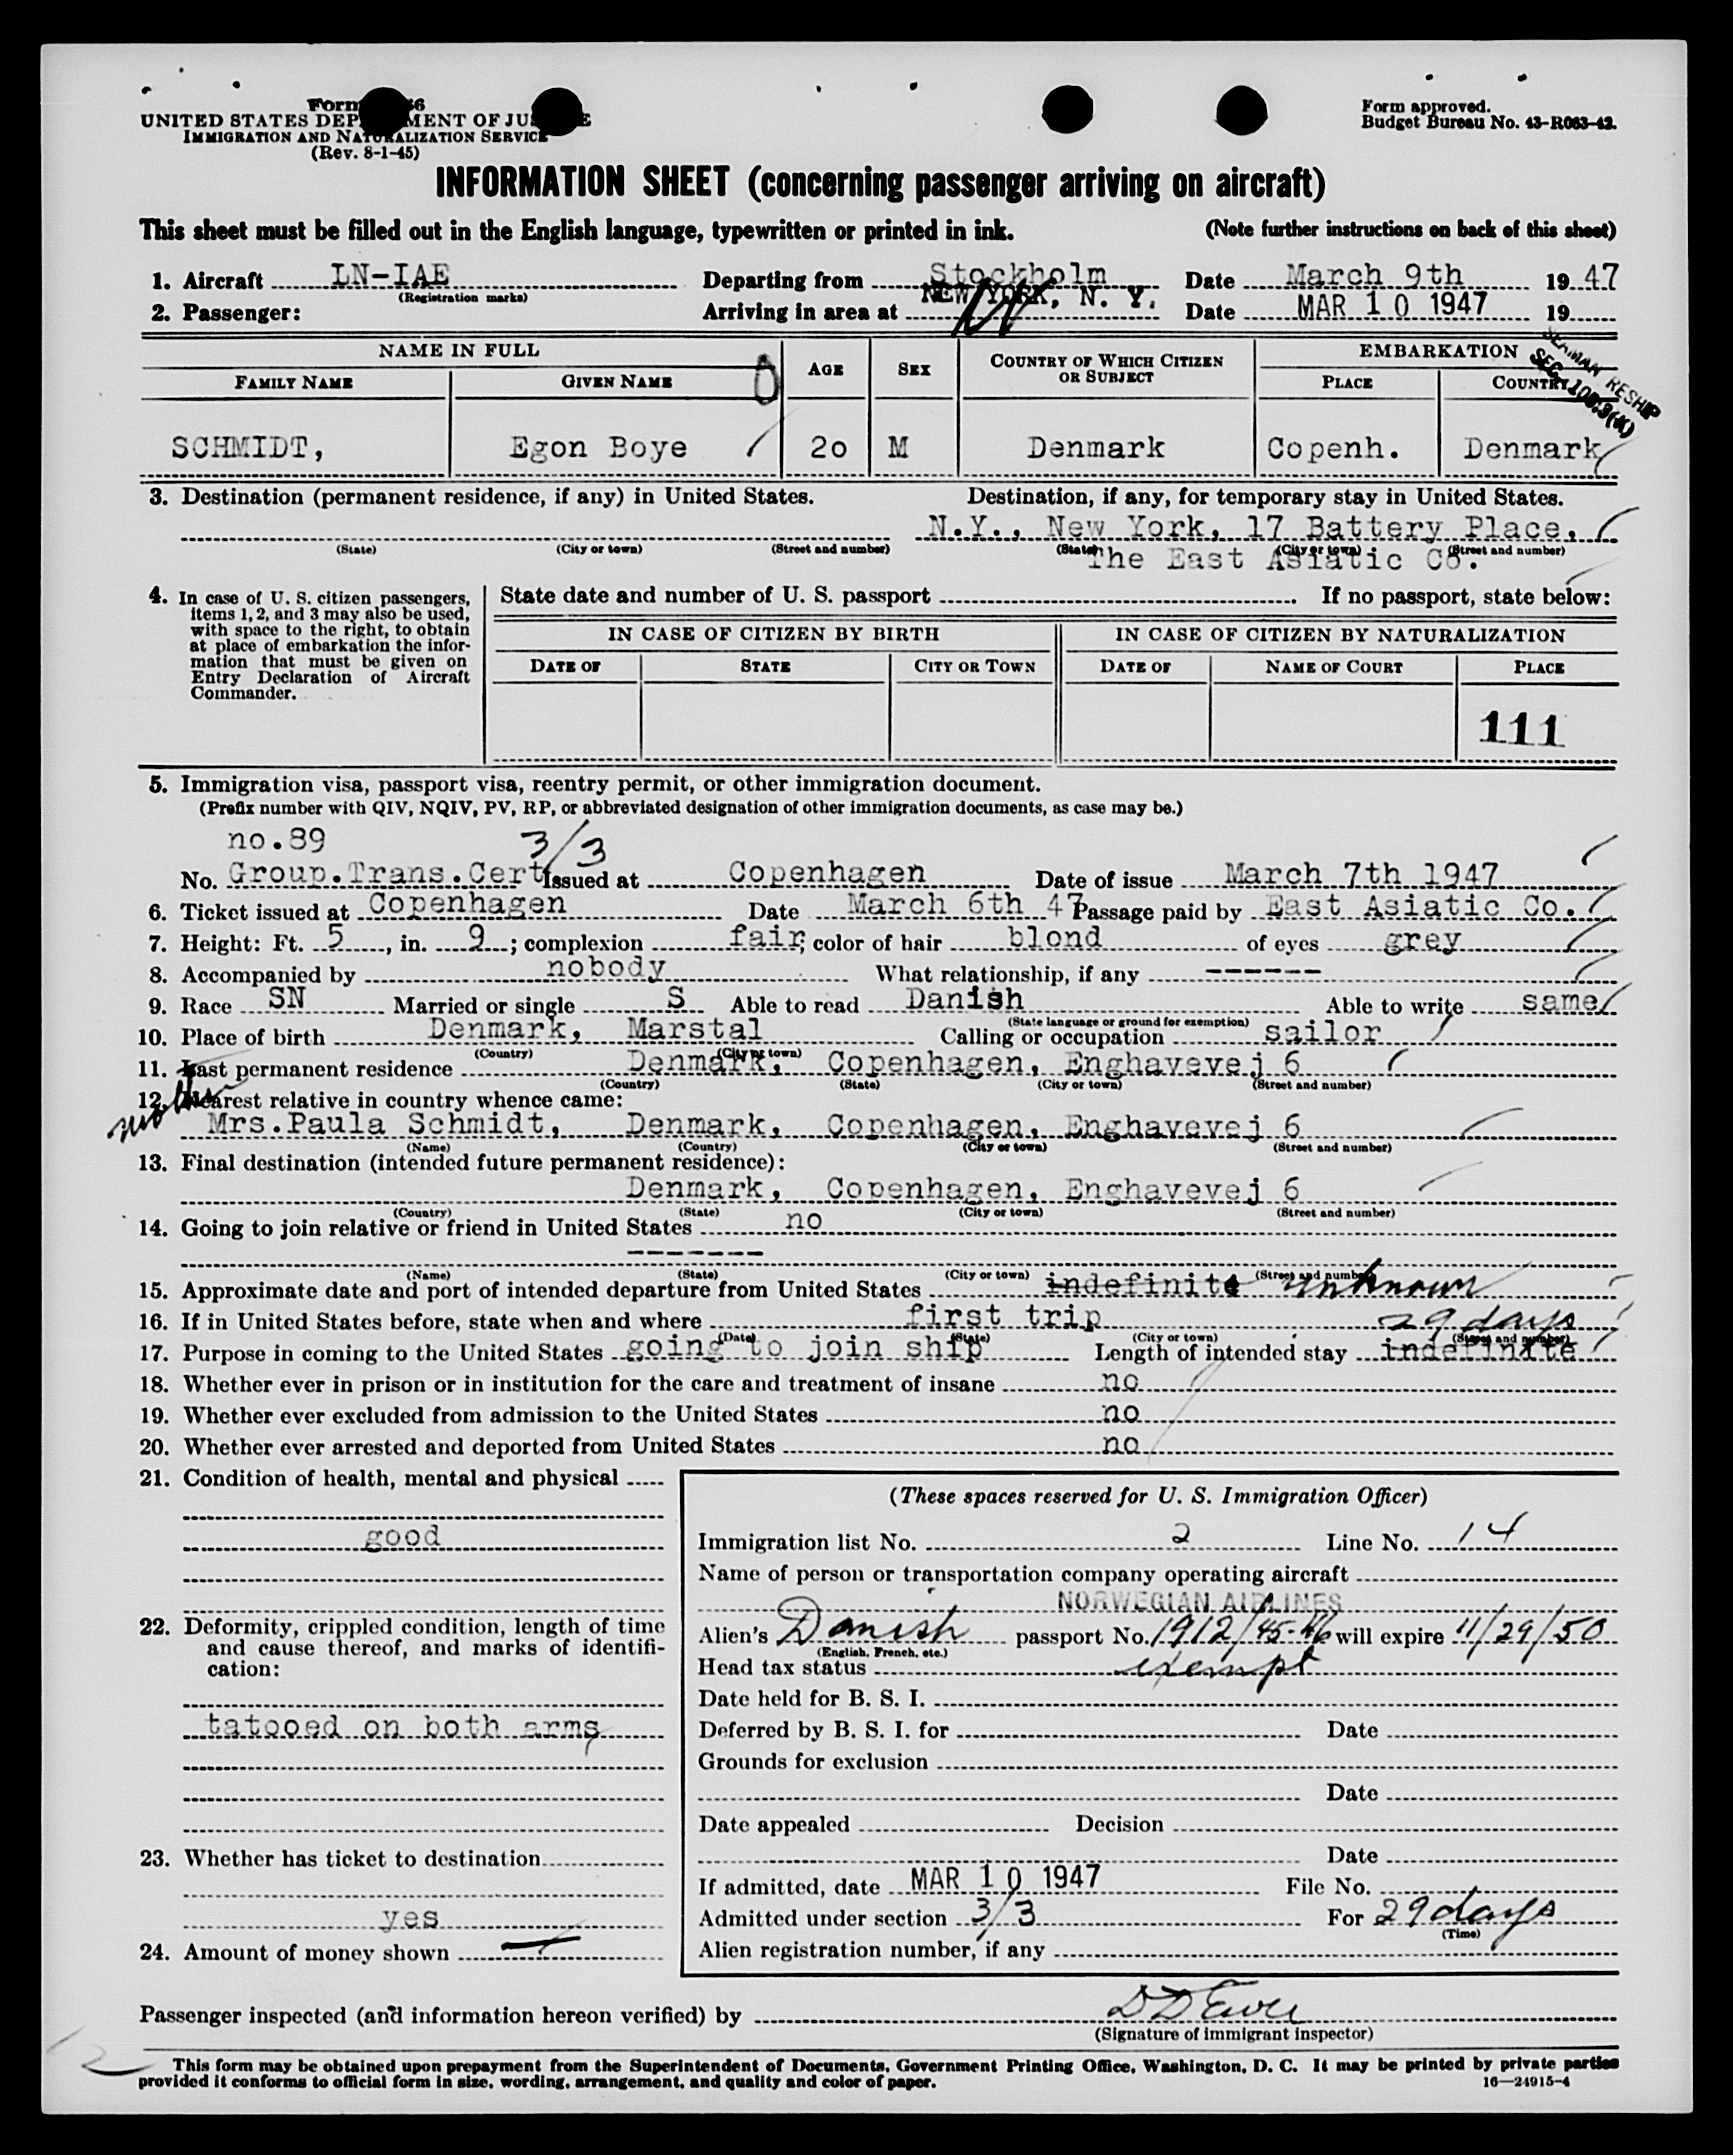 Form 6
UNITED STATES DEP MENT OF JU E
IMMIGRATION AND NATURALIZATION SERVICE
(Rev. 8-1-45)
Form approved.
Budget Bureau No. 43-R063-42.
INFORMATION SHEET (concerning passenger arriving on aircraft)
This sheet must be filled out in the English language, typewritten or printed in ink. (Note further instructions on back of this sheet)
1. Aircraft LN-IAE Departing from Stockholm Date March 9th 1947
(Registration marks)
2. Passenger: Arriving in area at NEW YORK, N. Y. Date MAR 10 1947 19
NAME IN FULL AGE SEX COUNTRY OF WHICH CITIZEN OR SUBJECT EMBARKATION
FAMILY NAME GIVEN NAME PLACE COUNTRY
SEAMAN RESHIP
SEC. 109.3(4)
SCHMIDT, Egon Boye 2o M Denmark Copenh. Denmark
3. Destination (permanent residence, if any) in United States. Destination, if any, for temporary stay in United States.
N.Y., New York, 17 Battery Place,
(State) (City or town) (Street and number) (State) (City or town) (Street and number)
The East Asiatic Co.
4. In case of U. S. citizen passengers, items 1, 2, and 3 may also be used, with space to the right, to obtain at place of embarkation the information that must be given on Entry Declaration of Aircraft Commander.
State date and number of U. S. passport If no passport, state below:
IN CASE OF CITIZEN BY BIRTH IN CASE OF CITIZEN BY NATURALIZATION
DATE OF STATE CITY OR TOWN DATE OF NAME OF COURT PLACE
111
5. Immigration visa, passport visa, reentry permit, or other immigration document.
(Prefix number with QIV, NQIV, PV, RP, or abbreviated designation of other immigration documents, as case may be.)
no.89 3/3
No. Group.Trans.Cert Issued at Copenhagen Date of issue March 7th 1947
6. Ticket issued at Copenhagen Date March 6th 47 Passage paid by East Asiatic Co.
7. Height: Ft. 5, in. 9; complexion fair; color of hair blond of eyes grey
8. Accompanied by nobody What relationship, if any ------
9. Race SN Married or single S Able to read Danish Able to write same
(State language or ground for exemption)
10. Place of birth Denmark, Marstal Calling or occupation sailor
(Country) (City or town)
11. Last permanent residence Denmark, Copenhagen, Enghavevej 6
(Country) (State) (City or town) (Street and number)
12. Nearest relative in country whence came:
mother Mrs.Paula Schmidt, Denmark, Copenhagen, Enghavevej 6
(Name) (Country) (City or town) (Street and number)
13. Final destination (intended future permanent residence):
Denmark, Copenhagen, Enghavevej 6
(Country) (State) (City or town) (Street and number)
14. Going to join relative or friend in United States no
-------
(Name) (State) (City or town) (Street and number)
15. Approximate date and port of intended departure from United States indefinite unknown
16. If in United States before, state when and where first trip 29 days
(Date) (State) (City or town) (Street and number)
17. Purpose in coming to the United States going to join ship Length of intended stay indefinite
18. Whether ever in prison or in institution for the care and treatment of insane no
19. Whether ever excluded from admission to the United States no
20. Whether ever arrested and deported from United States no
21. Condition of health, mental and physical
good
22. Deformity, crippled condition, length of time and cause thereof, and marks of identification:
tatooed on both arms
23. Whether has ticket to destination
yes
24. Amount of money shown
(These spaces reserved for U. S. Immigration Officer)
Immigration list No. 2 Line No. 14
Name of person or transportation company operating aircraft
NORWEGIAN AIRLINES
Alien's Danish passport No. 1912/45-46 will expire 11/29/50
(English, French, etc.)
Head tax status exempt
Date held for B. S. I.
Deferred by B. S. I. for Date
Grounds for exclusion
Date
Date appealed Decision
Date
If admitted, date MAR 10 1947 File No.
Admitted under section 3/3 For 29 days
(Time)
Alien registration number, if any
Passenger inspected (and information hereon verified) by
(Signature of immigrant inspector)
12
This form may be obtained upon prepayment from the Superintendent of Documents, Government Printing Office, Washington, D. C. It may be printed by private parties
provided it conforms to official form in size, wording, arrangement, and quality and color of paper. 16—24915-4